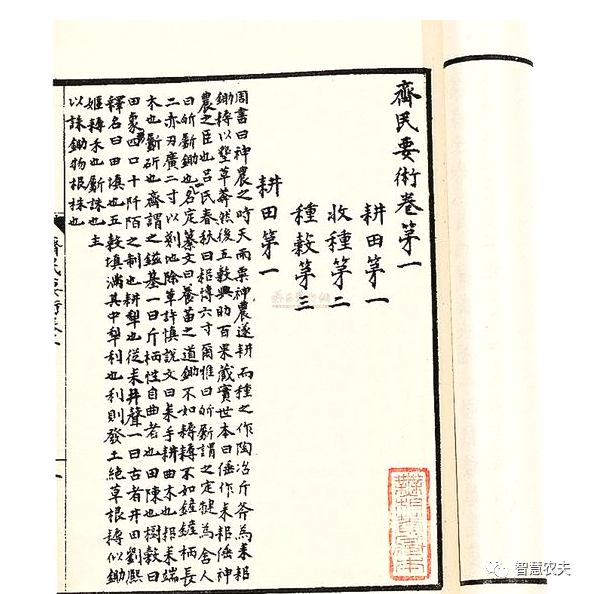 齊民要術卷第一
耕田第一
收種第二
種穀第三
耕田第一
周書曰神農之時天雨粟神農遂耕而種之作陶冶斤斧為耒耜
鋤耨以墾草莽然後五穀興助百果藏實世本曰倕作耒耜倕神
農之臣也呂氏春秋曰耜博六寸爾雅曰斪斸謂之定犍為舍人
曰斪斸鋤也名定纂文曰養苗之道鋤不如耨耨不如鏟鏟柄長
二赤刃廣二寸以剗地除草許慎說文曰耒手耕曲木也耜耒端
木也斸斫也齊謂之鎡基一曰斤柄性自曲者也田陳也樹穀曰
田象四口十阡陌之制也耕犂也從耒井聲一曰古者井田劉熙
釋名曰田填也五穀填滿其中犂利也利則發土絕草根耨似鋤
嫗耨禾也斸誅也主
以誅鋤物根株也
智慧农夫